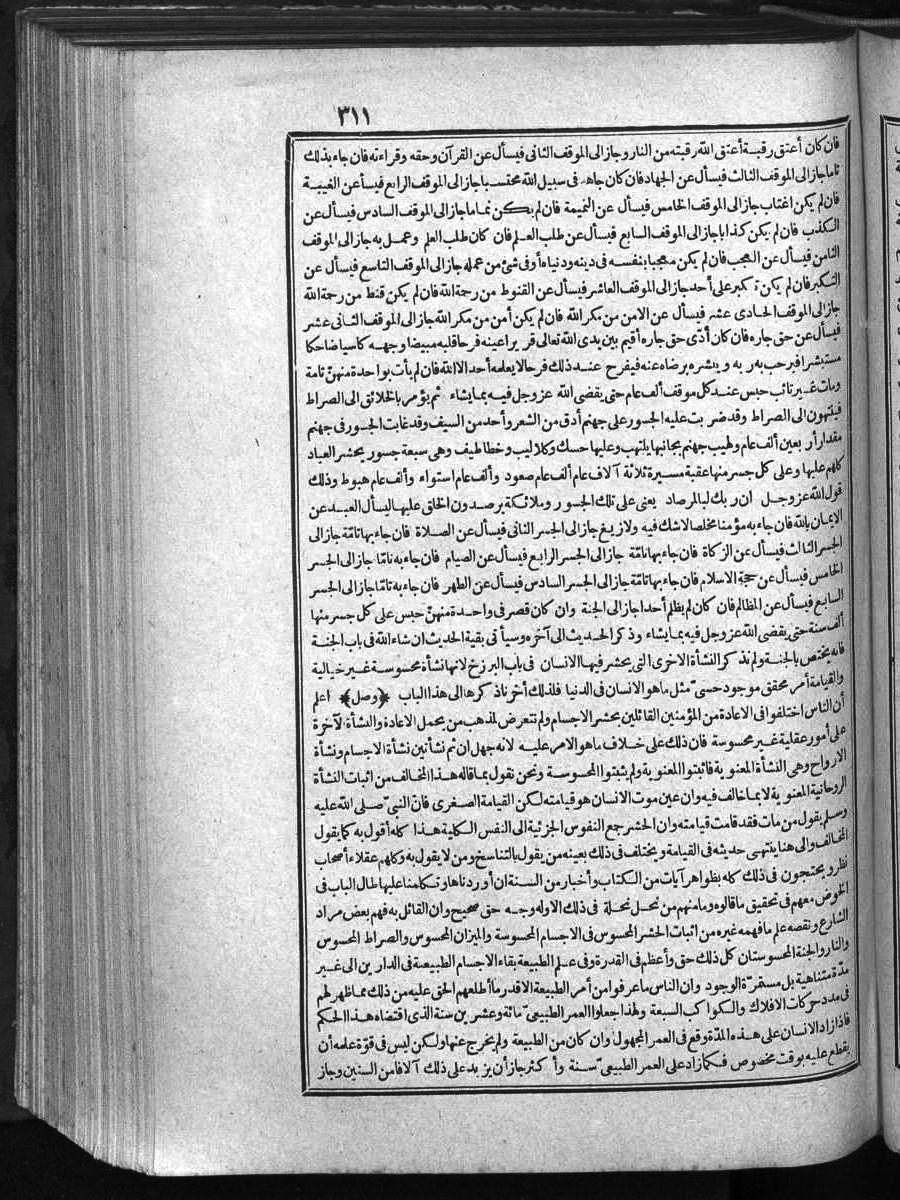 ٣١١
فان كان أعتق رقبة أعتق الله رقبته من النار وجاز الى الموقف الثانى فيسأل عن القرآن وحقه وقراءته فان جاء بذلك
تاما جاز الى الموقف الثالث فيسأل عن الجهاد فان كان جاهد فى سبيل الله محتسبا جاز الى الموقف الرابع فيسأ عن الغيبة
فان لم يكن اغتاب جاز الى الموقف الخامس فيسأل عن النميمة فان لم يكن نماما جاز الى الموقف السادس فيسأل عن
الكذب فان لم يكن كذابا جاز الى الموقف السابع فيسأل عن طلب العلم فان كان طلب العلم وعمل به جاز الى الموقف
الثامن فيسأل عن العجب فان لم يكن معجبا بنفسه فى دينه ودنياه أو فى شئ من عمله جاز الى الموقف التاسع فيسأل عن
التكبر فان لم يكن تكبر على أحد جاز الى الموقف العاشر فيسأل عن القنوط من رحمة الله فان لم يكن قنط من رحمة الله
جاز الى الموقف الحادى عشر فيسأل عن الامن من مكر الله فان لم يكن أمن من مكر الله جاز الى الموقف الثانى عشر
فيسأل عن حق جاره فان كان أدّى حق جاره أقيم بين يدى الله تعالى قريرا عينه فرحا قلبه مبيضا وجهه كاسيا ضاحكا
مستبشرا فيرحب به ربه ويبشره برضاه عنه فيفرح عند ذلك فرحا لا يعلمه أحد الا الله فان لم يأت بواحدة منهنّ تامة
ومات غير تائب حبس عند كل موقف ألف عام حتى يقضى الله عز وجل فيه بما يشاء ثم يؤمر بالخلائق الى الصراط
فينتهون الى الصراط وقد ضربت عليه الجسور على جهنم أدق من الشعر وأحد من السيف وقد غابت الجسور فى جهنم
مقدار أربعين ألف عام ولهيب جهنم بجانبها يلتهب وعليها حسك وكلاليب وخطاطيف وهى سبعة جسور يحشر العباد
كلهم عليها وعلى كل جسر منها عقبة مسيرة ثلاثة آلاف عام ألف عام صعود وألف عام استواء وألف عام هبوط وذلك
قول الله عز وجل ان ربك لبالمرصاد يعنى على تلك الجسور وملائكة يرصدون الخلق عليها ليسأل العبد عن
الايمان بالله فان جاء به مؤمنا مخلصا لا شك فيه ولا زيغ جاز الى الجسر الثانى فيسأل عن الصلاة فان جاء بها تامّة جاز الى
الجسر الثالث فيسأل عن الزكاة فان جاء بها تامّة جاز الى الجسر الرابع فيسأل عن الصيام فان جاء به تامّا جاز الى الجسر
الخامس فيسأل عن حجة الاسلام فان جاء بها تامّة جاز الى الجسر السادس فيسأل عن الطهر فان جاء به تامّا جاز الى الجسر
السابع فيسأل عن المظالم فان كان لم يظلم أحدا جاز الى الجنة وان كان قصر فى واحدة منهنّ حبس على كل جسر منها
ألف سنة حتى يقضى الله عز وجل فيه بما يشاء وذكر الحديث الى آخره وسيأتى بقية الحديث ان شاء الله فى باب الجنة
فانه يختص بالجنة ولم نذكر النشأة الاخرى التى يحشر فيها الانسان فى باب البرزخ لانها نشأة محسوسة غير خيالية
والقيامة أمر محقق موجود حسىّ مثل ما هو الانسان فى الدنيا فلذلك أخرنا ذكرها الى هذا الباب ﴿وصل﴾ اعلم
أن الناس اختلفوا فى الاعادة من المؤمنين القائلين بحشر الاجسام ولم نتعرض لمذهب من يحمل الاعادة والنشأة الآخرة
على أمور عقلية غير محسوسة فان ذلك على خلاف ما هو الامر عليه لانه جهل ان ثم نشأتين نشأة الاجسام ونشأة
الارواح وهى النشأة المعنوية فاثبتوا المعنوية ولم يثبتوا المحسوسة ونحن نقول بما قاله هذا المخالف من اثبات النشأة
الروحانية المعنوية لا بما خالف فيه وان عين موت الانسان هو قيامته لكن القيامة الصغرى فان النبىّ صلى الله عليه
وسلم يقول من مات فقد قامت قيامته وان الحشر جمع النفوس الجزئية الى النفس الكلية هذا كله أقول به كما يقول
المخالف والى هنا ينتهى حديثه فى القيامة ويختلف فى ذلك بعينه من يقول بالتناسخ ومن لا يقول به وكلهم عقلاء أصحاب
نظر ويحتجون فى ذلك كله بظواهر آيات من الكتاب وأخبار من السنة ان أوردناها وتكلمنا عليها طال الباب فى
الخوض معهم فى تحقيق ما قالوه وما منهم من نحل نحلة فى ذلك الاوله وجه حق صحيح وان القائل به فهم بعض مراد
الشارع ونقصه علم ما فهمه غيره من اثبات الحشر المحسوس فى الاجسام المحسوسة والميزان المحسوس والصراط المحسوس
والنار والجنة المحسوستان كل ذلك حق وأعظم فى القدرة وفى علم الطبيعة بقاء الاجسام الطبيعية فى الدارين الى غير
مدّة متناهية بل مستمرّة الوجود وان الناس ما عرفوا من أمر الطبيعة الا قدر ما أطلعهم الحق عليه من ذلك مما ظهر لهم
فى مدد حركات الافلاك والكواكب السبعة ولهذا جعلوا العمر الطبيعىّ مائة وعشرين سنة الذى اقتضاه هذا الحكم
فاذا زاد الانسان على هذه المدّة وقع فى العمر المجهول وان كان من الطبيعة ولم يخرج عنها ولكن ليس فى قوّة علمه أن
يقطع عليه بوقت مخصوص فكما زاد على العمر الطبيعىّ سنة وأكثر جاز أن يزيد على ذلك آلافا من السنين وجاز